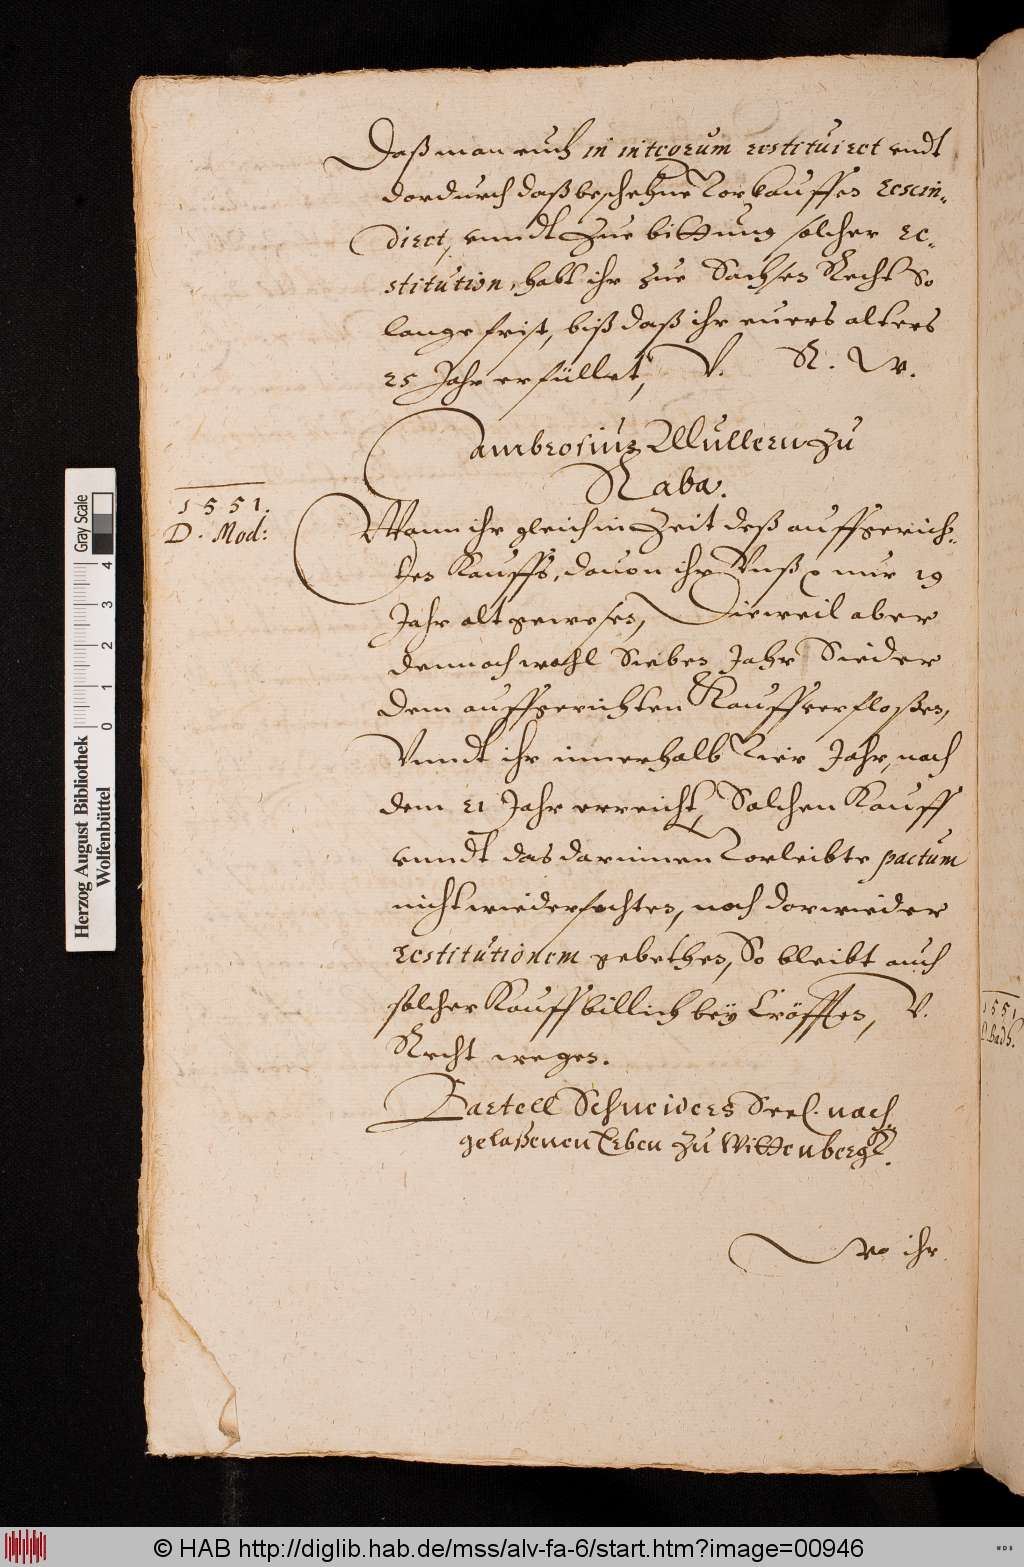 Daß man euch in integrum restituiret undt
dordurch daß beschehne Vorkauffen rescin-
diret, unndt zue bittung solcher re-
stitution, habt ihr zue Sachsen Recht So
lange frist, biß daß ihr euers alters
25 Jahr erfüllet, V. R. W.
Ambrosius Mullern zu
Raba.
1551.
D. Mod:
Wann ihr gleich in Zeit deß auffgerich-
ten Kauffs, dauon ihr Vnß p nur 19
Jahr alt gewesen, Dieweil aber
dennoch wohl Sieben Jahr Sieder
dem auffgerichten Kauff verfloßen,
Vnndt ihr innerhalb Vier Jahr, nach
dem 21 Jahr erreicht, Solchen Kauff
unndt das darinnen Vorleibte pactum
nicht wiederfochten, noch dorwieder
restitutionem gebethen, So bleibt auch
solcher Kauff billich bey Cröfften, V.
Recht wegen.
Bartell Schneiders Seel. nach
gelaßenen Erben zu Wittenbergk.
Wo ihr
1551
D. Bads.
Herzog August Bibliothek
Wolfenbüttel
Gray Scale
0 1 2 3 4
© HAB http://diglib.hab.de/mss/alv-fa-6/start.htm?image=00946